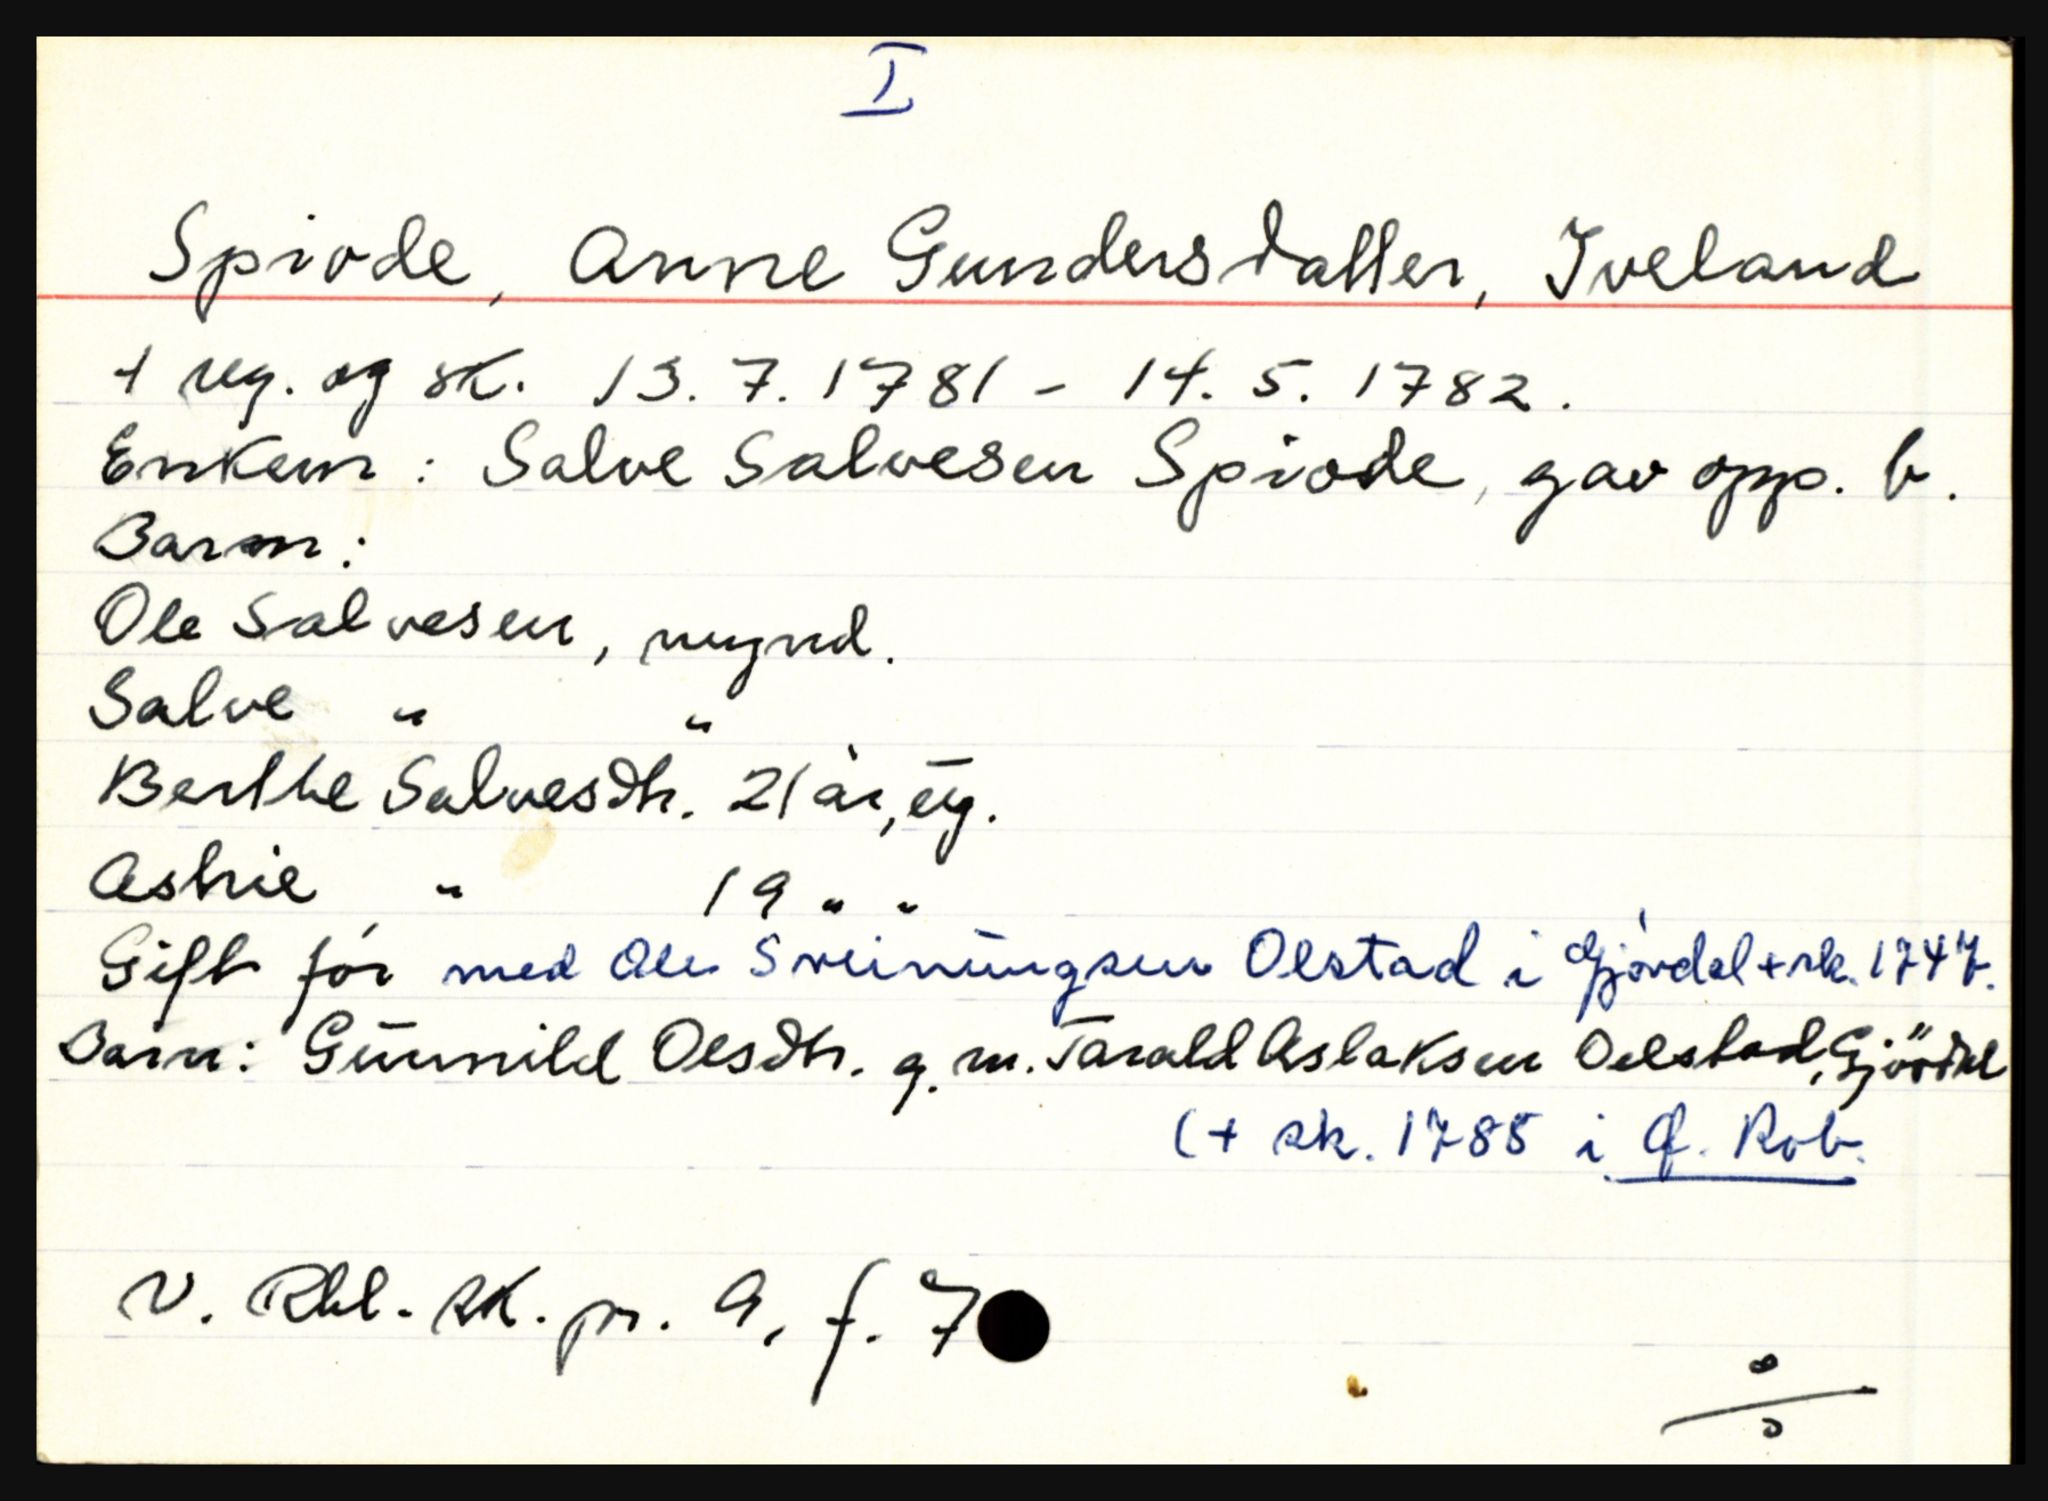 I
Spiode, Anne Gundersdatter, Iveland
+ reg. og sk. 13.7.1781 - 14.5.1782.
Enkem: Salve Salvesen Spiode, gav opp. b.
Barn:
Ole Salvesen, mynd.
Salve " "
Berthe Salvesdtr. 21 år, ug.
Astrie " 19 " "
Gift för med Ole Sveinungsen Olstad i Gjövdal + sk. 1747.
Barn: Gunnild Olesdtr. g. m. Tarald Aslaksen Oelstad, Gjövdal
(+ sk. 1785 i Ø. Rob.
V. Rbl. sk. pr. 9, f. 7